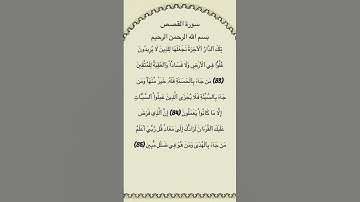 سورة القصص
بسم الله الرحمن الرحيم
تِلْكَ الدَّارُ الْآخِرَةُ نَجْعَلُهَا لِلَّذِينَ لَا يُرِيدُونَ
عُلُوًّا فِي الْأَرْضِ وَلَا فَسَادًا وَالْعَاقِبَةُ لِلْمُتَّقِينَ
(83) مَن جَاءَ بِالْحَسَنَةِ فَلَهُ خَيْرٌ مِّنْهَا وَمَن
جَاءَ بِالسَّيِّئَةِ فَلَا يُجْزَى الَّذِينَ عَمِلُوا السَّيِّئَاتِ
إِلَّا مَا كَانُوا يَعْمَلُونَ (84) إِنَّ الَّذِي فَرَضَ
عَلَيْكَ الْقُرْآنَ لَرَادُّكَ إِلَى مَعَادٍ قُل رَّبِّي أَعْلَمُ
مَن جَاءَ بِالْهُدَى وَمَنْ هُوَ فِي ضَلَالٍ مُّبِينٍ (85)